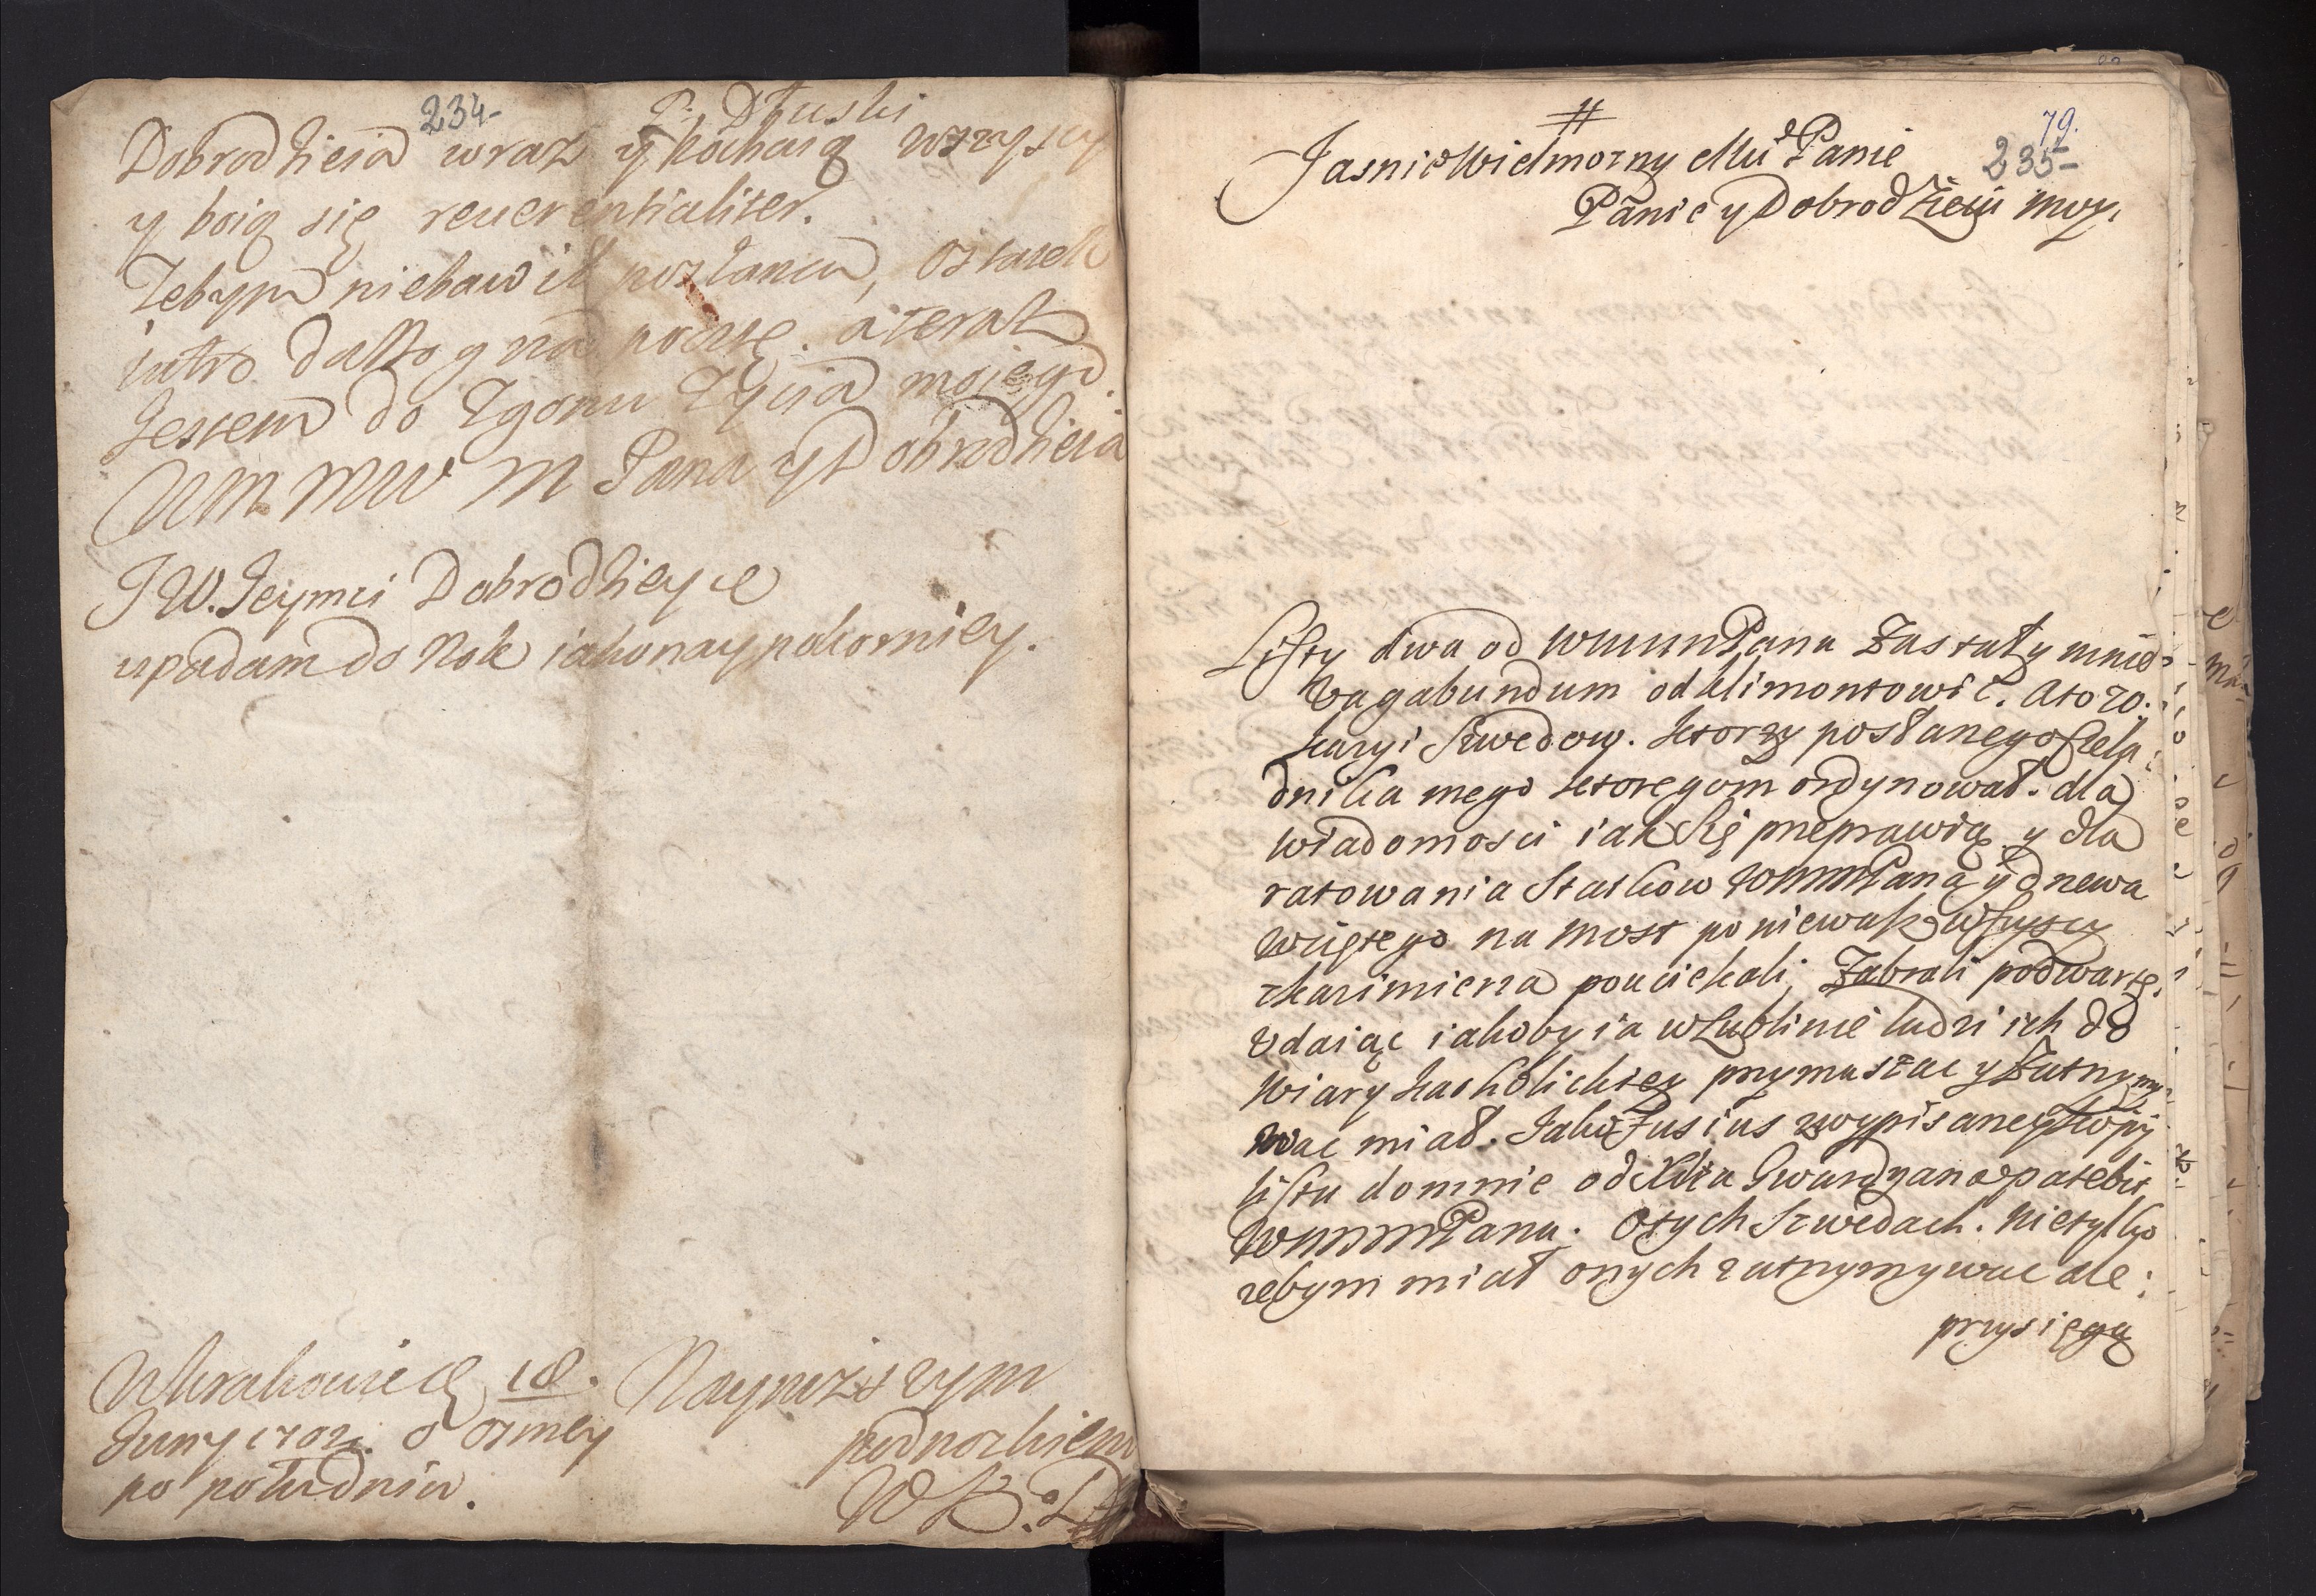 234-
P. Dłuski
Dobrodzieia wraz y kochaią wszyscy
y boią się reuerentialiter.
Zebym niebawił posłanca, ostatek
iutro da Bog na pocztę. a teraz
Jestem do Zgonu Zycia moiego
WM MW M Pana y Dobrodzieia
JW. Jeymci Dobrodzieyce
upadam do Nok iako naypokorniey.
WKrakowie 18.
Juny 1702. o osmey
po południu.
Nayniższym
podnozkiem
79.
235-
Jasnie Wielmozny Mci Panie
Panie y Dobrodzieiu moy.
Listy dwa od WMMPana Zastały mnie
Vagabundum od Klimontowic. Ato zo.
kazyi Szwedow. ktorzy posłanego Czela
dnika mego ktoregom ordynował. dla
wiadomosci iak się przeprawią y dla
ratowania Statkow WMMMPana y drzewa
wziętego na most poniewasz wszyscy
zkazimierza pouciekali, Zabrali podwartę.
Vdaiąc iakoby ia wLublinie ludzi ich do
Wiary katholickiey przymuszac y Zatrzymy-
wac miał. Jako fusius zwypisaney kopij
listu domnie od Xdza Gwardyana patebit
WMMMPanu. Otych Szwedach. Nietylko
zebym miał onych zatrzymywac ale:
przysięgą